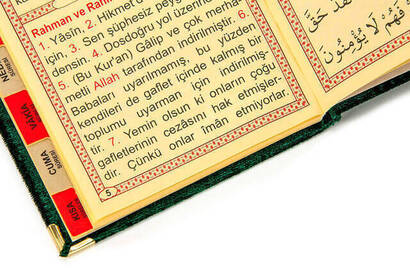 Rahman ve Rahî
1. Yâsîn, 2. Hikmet
için, 3. Sen şüphesiz peyg
densin. 4. Dosdoğru yol üzerin
5. (Bu Kur'an) Gâlip ve çok merha
metli Allah tarafından indirilmiştir. 6.
Babaları uyarılmamış, bu yüzden
kendileri de gaflet içinde kalmış bir
toplumu uyarman için indirilmiş-
tir. 7. Yemin olsun ki onların çoğu
gafletlerinin cezasını hak etmişler-
dir. Çünkü onlar îmân etmiyorlar.
5
فَهُمْ لَا يُؤْمِنُونَ
VÂKIA
CUMA
SURESİ
KISA